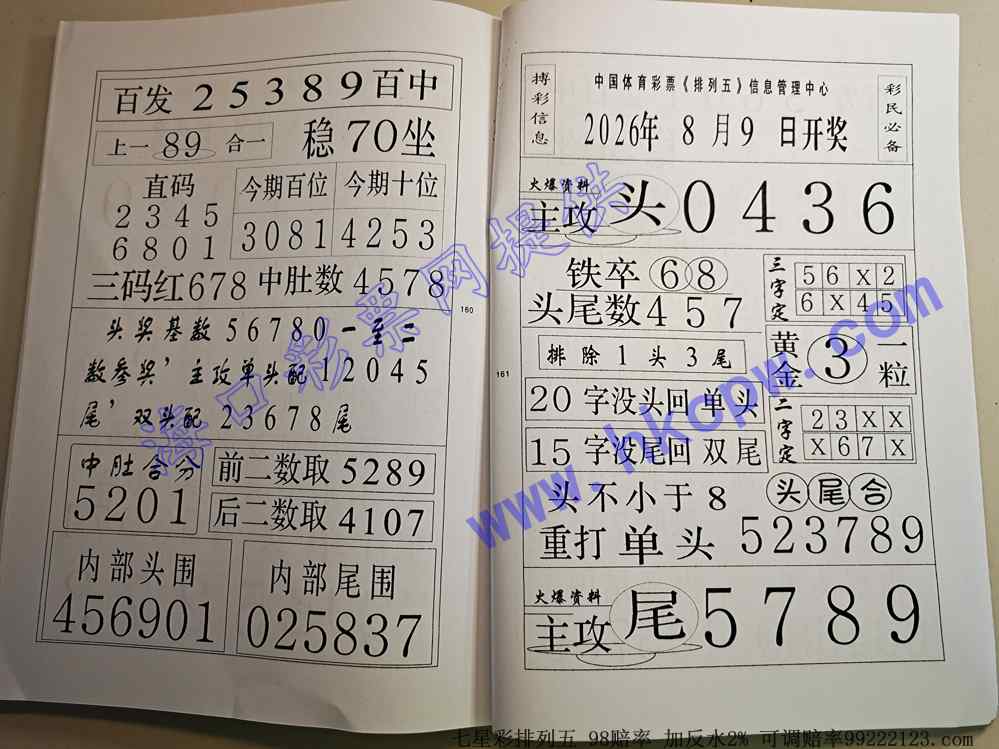 百发 25389 百中
上一 89 合一 稳 70 坐
直码
2345
6801
今期百位
3081
今期十位
4253
三码红 678 中肚数 4578
160
头奖基数 56780 一至二
数参奖’主攻单头配 12045
尾’双头配 23678 尾
中肚合分
5201
前二数取 5289
后二数取 4107
内部头围
456901
内部尾围
025837
搏彩信息
中国体育彩票《排列五》信息管理中心
2026年 8 月 9 日开奖
彩民必备
火爆资料
主攻 头 0436
铁卒 68
头尾数 457
三字定
56X2
6X45
161
排除 1 头 3 尾
黄金 3 一粒
20 字没头回 单头
15 字没尾回 双尾
二字定
23XX
X67X
头不小于 8 头尾合
重打 单头 523789
火爆资料
主攻 尾 5789
海口彩票网提供
www.hkcpw.com
七星彩排列五 98赔率 加反水2% 可调赔率99222123.com